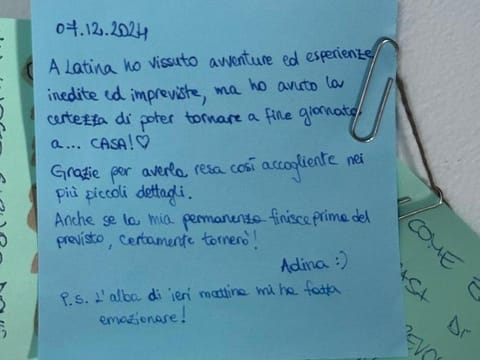 07.12.2024
A Latina ho vissuto avventure ed esperienze
inedite ed impreviste, ma ho avuto la
certezza di poter tornare a fine giornata
a... CASA!♡
Grazie per averla resa così accogliente nei
più piccoli dettagli.
Anche se la mia permanenza finisce prima del
previsto, certamente tornerò!
Adina :)
P.s. L'alba di ieri mattina mi ha fatta
emozionare!
COME
DI